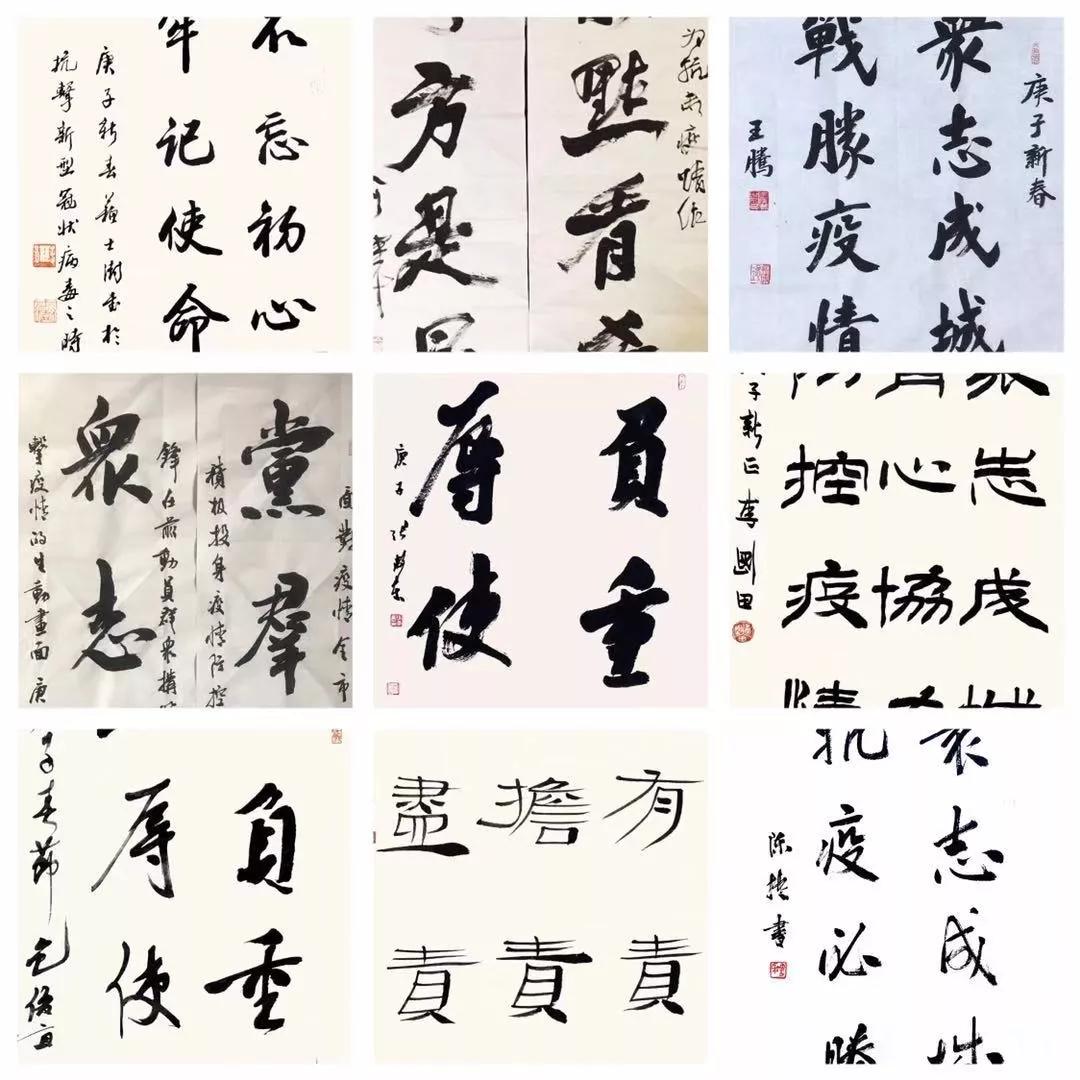 不忘初心
牢记使命
庚子新春蘇士澍書於
抗擊新型冠狀病毒之時
點看
方是
庚子新春
眾志成城
戰勝疫情
王騰
面對疫情全市
黨羣
積极投身疫情防控
鋒在前動員群眾構
眾志
擊疫情的生動畫面庚
負重
辱使
庚子
眾志成城
齊心協力
防控疫情
子新正李國田
負重
辱使
子春節
有責
擔責
盡責
眾志成城
抗疫必勝
陈捷書